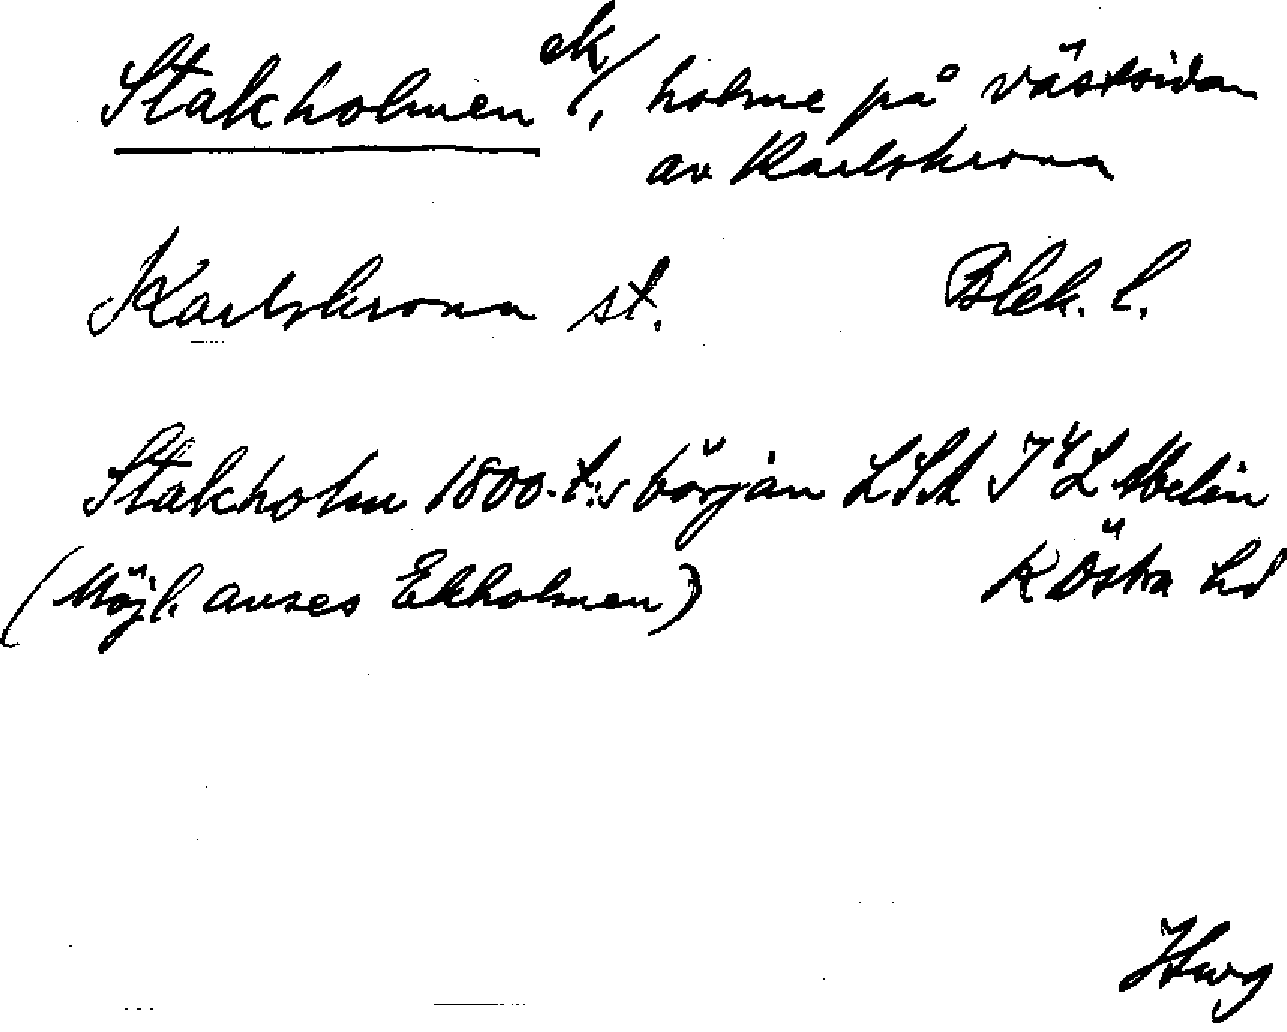 Stakholmen ek/, holme på västsidan
av Karlskrona
Karlskrona st. Blek. l.
Stakholm 1800-t:s början LSA J4L Melin
(Möjl. avses Ekholmen) K Östra hd
Hwg